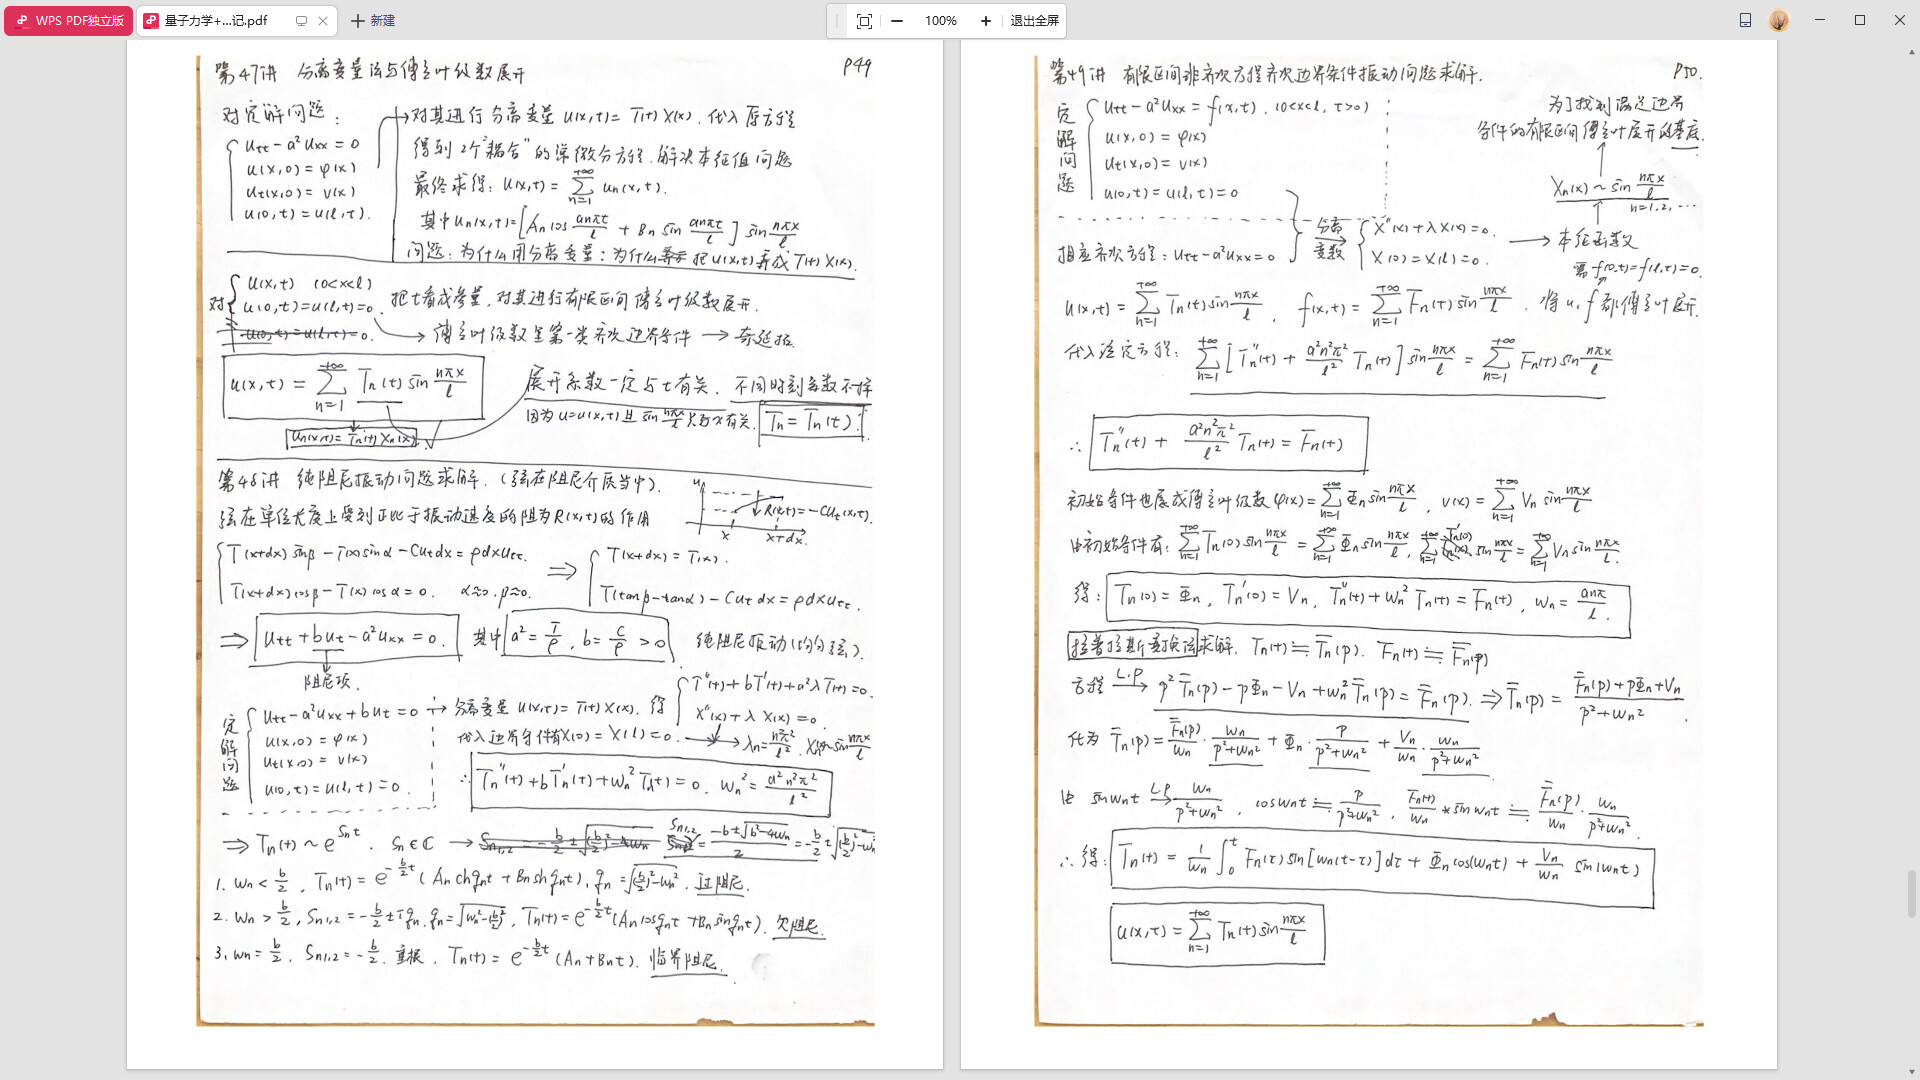 WPS PDF独立版
量子力学+...记.pdf
新建
100%
退出全屏
第47讲 分离变量法与傅立叶级数展开 P49
对定解问题:
utt - a²uxx = 0
u(x,0) = φ(x)
ut(x,0) = v(x)
u(0,t) = u(l,t).
对其进行分离变量 u(x,t) = T(t) X(x). 代入原方程
得到2个"耦合"的常微分方程. 解决本征值问题
最终求得: u(x,t) = Σ_{n=1}^{+∞} un(x,t).
其中 un(x,t) = [An cos anπt/l + Bn sin anπt/l] sin nπx/l
问题: 为什么用分离变量: 为什么要把 u(x,t) 弄成 T(t) X(x).
对 { u(x,t) (0<x<l)
u(0,t) = u(l,t) = 0.
把t看成参量, 对其进行有限区间傅立叶级数展开.
u(0,t) = u(l,t) = 0.
傅立叶级数 第一类齐次边界条件 → 奇延拓.
u(x,t) = Σ_{n=1}^{+∞} Tn(t) sin nπx/l
un(x,t) = Tn(t) Xn(x) √
展开系数一定与t有关. 不同时刻系数不一样
因为 u = u(x,t) 且 sin nπx/l 只与x有关. Tn = Tn(t).
第48讲 纯阻尼振动问题求解. (弦在阻尼介质当中).
u
R(x,t) = -Cut(x,t).
x x+dx.
弦在单位长度上受到正比于振动速度的阻力 R(x,t) 的作用
T(x+dx) sinβ - T(x) sinα - Cut dx = ρdx utt.
T(x+dx) cosβ - T(x) cosα = 0. α≈0. β≈0.
⇒ T(x+dx) = T(x).
T(tanβ - tanα) - Cut dx = ρdx utt.
⇒ utt + but - a²uxx = 0. 其中 a² = T/ρ, b = C/ρ > 0 纯阻尼振动 (均匀弦).
阻尼项.
定解问题
utt - a²uxx + but = 0 → 分离变量 u(x,t) = T(t) X(x). 得 T''(t) + bT'(t) + a²λT(t) = 0.
X''(x) + λX(x) = 0.
u(x,0) = φ(x)
ut(x,0) = v(x)
u(0,t) = u(l,t) = 0.
代入边界条件有 X(0) = X(l) = 0. → λn = n²π²/l². X(x) ~ sin nπx/l
∴ Tn''(t) + bTn'(t) + wn² Tn(t) = 0. wn² = a²n²π²/l²
⇒ Tn(t) ~ e^{Snt}. Sn ∈ C → Sn1,2 = (-b ± √(b²-4wn))/2 = -b/2 ± √((b/2)² - wn²
1. wn < b/2, Tn(t) = e^{-b/2 t} (An ch qnt + Bn sh qnt), qn = √((b/2)² - wn²). 过阻尼.
2. wn > b/2, Sn1,2 = -b/2 ± iqn. qn = √(wn² - (b/2)²), Tn(t) = e^{-b/2 t} (An cos qnt + Bn sin qnt). 欠阻尼.
3. wn = b/2. Sn1,2 = -b/2. 重根. Tn(t) = e^{-b/2 t} (An + Bnt). 临界阻尼.
第49讲 有限区间非齐次方程齐次边界条件振动问题求解. P50.
定解问题
utt - a²uxx = f(x,t). (0<x<l, t>0)
u(x,0) = φ(x)
ut(x,0) = v(x)
u(0,t) = u(l,t) = 0
为了找到满足边界
条件的有限区间傅立叶展开的基底.
Xn(x) ~ sin nπx/l
n=1,2,...
相应齐次方程: utt - a²uxx = 0
分离变数
X''(x) + λX(x) = 0.
X(0) = X(l) = 0.
→ 本征函数
需 f(0,t) = f(l,t) = 0.
u(x,t) = Σ_{n=1}^{+∞} Tn(t) sin nπx/l, f(x,t) = Σ_{n=1}^{+∞} Fn(t) sin nπx/l, 将 u, f 都傅立叶展开.
代入泛定方程: Σ_{n=1}^{+∞} [Tn''(t) + a²n²π²/l² Tn(t)] sin nπx/l = Σ_{n=1}^{+∞} Fn(t) sin nπx/l
∴ Tn''(t) + a²n²π²/l² Tn(t) = Fn(t)
初始条件也展成傅立叶级数 φ(x) = Σ_{n=1}^{+∞} Φn sin nπx/l, v(x) = Σ_{n=1}^{+∞} Vn sin nπx/l
由初始条件有: Σ_{n=1}^{+∞} Tn(0) sin nπx/l = Σ_{n=1}^{+∞} Φn sin nπx/l, Σ_{n=1}^{+∞} Tn'(0) sin nπx/l = Σ_{n=1}^{+∞} Vn sin nπx/l.
得: Tn(0) = Φn, Tn'(0) = Vn, Tn''(t) + wn² Tn(t) = Fn(t), wn = anπ/l.
拉普拉斯变换法求解. Tn(t) ≒ T̄n(p). Fn(t) ≒ F̄n(p)
方程 L.P → p² T̄n(p) - pΦn - Vn + wn² T̄n(p) = F̄n(p). ⇒ T̄n(p) = (F̄n(p) + pΦn + Vn)/(p² + wn²).
化为 T̄n(p) = F̄n(p)/wn · wn/(p²+wn²) + Φn · p/(p²+wn²) + Vn/wn · wn/(p²+wn²).
由 sin wnt L.P → wn/(p²+wn²), cos wnt ≒ p/(p²+wn²), Fn(t)/wn * sin wnt ≒ F̄n(p)/wn · wn/(p²+wn²).
∴ 得: Tn(t) = 1/wn ∫₀ᵗ Fn(τ) sin[wn(t-τ)] dτ + Φn cos(wnt) + Vn/wn sin(wnt)
u(x,t) = Σ_{n=1}^{+∞} Tn(t) sin nπx/l